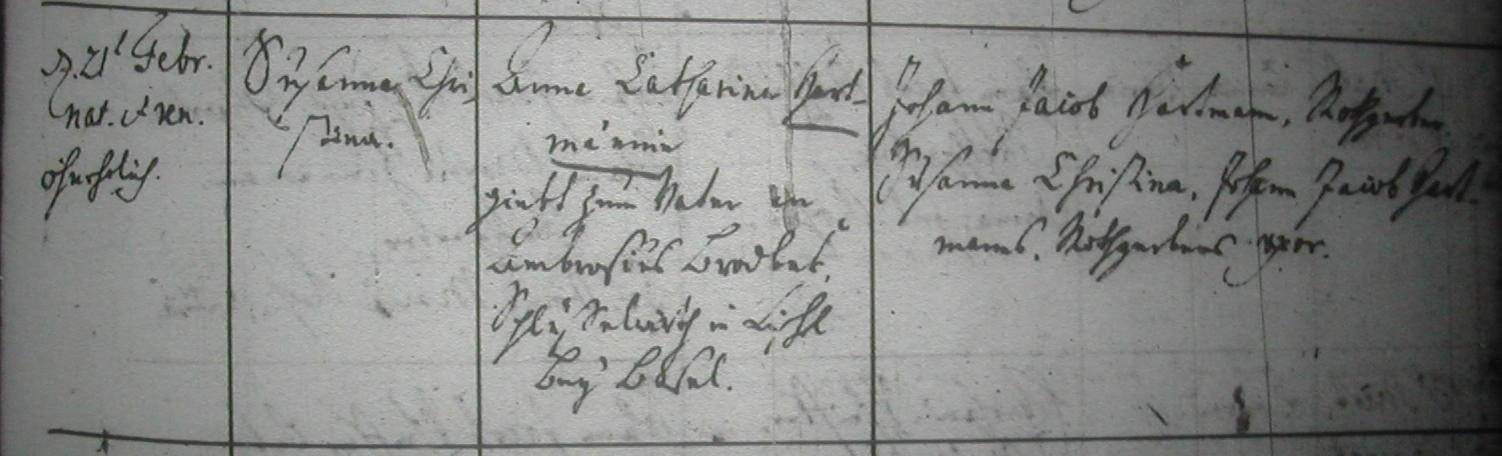 d. 21t Febr.
nat. et ren.
ohnehrlich.
Susanna Chri-
stina.
Anna Catharina Hart-
männin
giebt zum Vater an
Ambrosius Brodbek,
Schlüsselwirth in
bey Basel.
Johann Jacob Hartmann, Rothgerber
Susanna Christina, Johann Jacob Hart-
manns, Rothgerbers uxor.